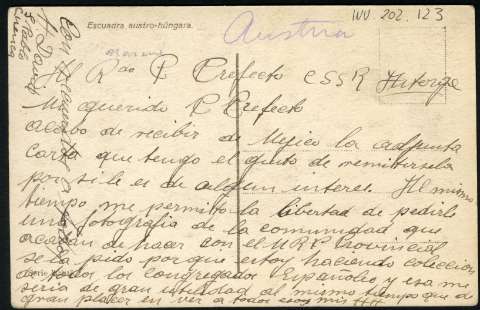 Escuadra austro-húngara.
INV. 202. 123
Austria
M. Rdo P. Prefecto CSSR Astorga
Mi querido P. Prefecto
Acabo de recibir de Mejico la adjunta
carta que tengo el gusto de remitirsela
por si le es de algun interes. Al mismo
tiempo me permito la libertad de pedirle
una fotografia de la comunidad que
acaban de hacer con el M.R.P. Provincial
se la pido porque estoy haciendo coleccion
de todos los congregados Españoles y esa me
seria de gran utilidad al mismo tiempo que de
gran placer en ver a todos esos mis HH
Con
S. Pablo
Cuenca